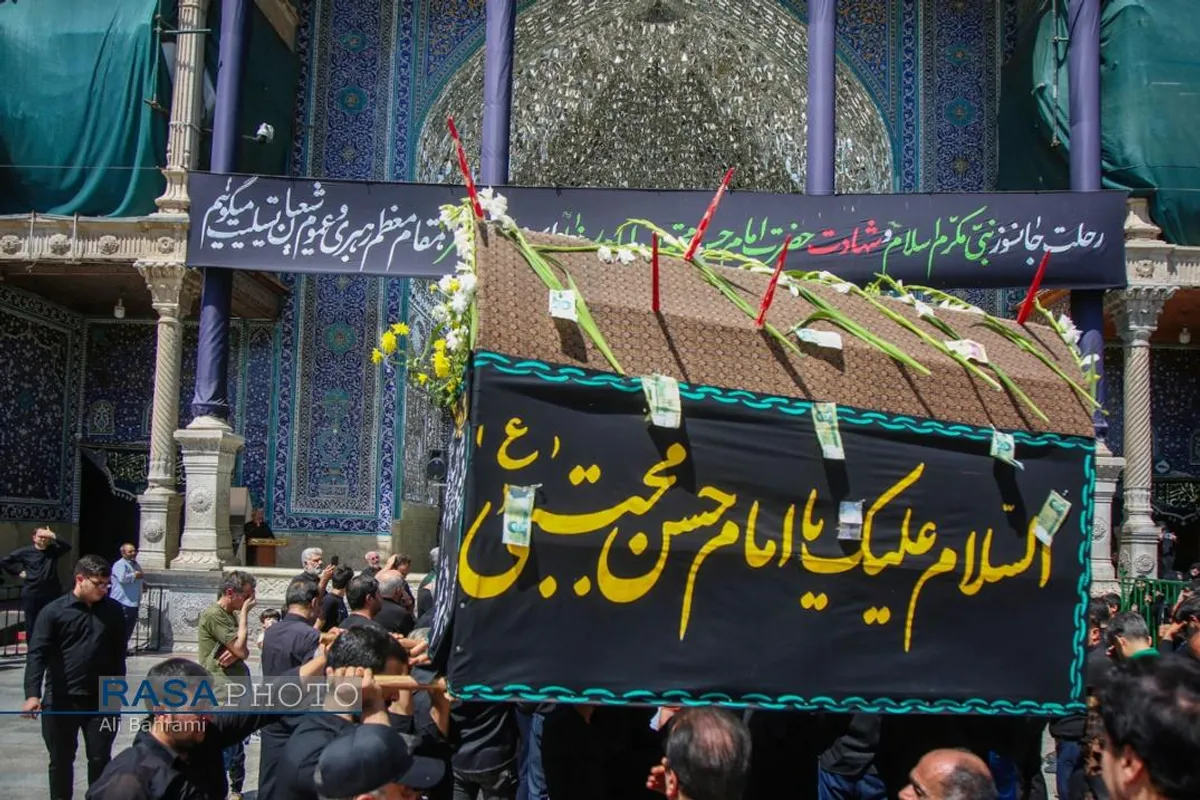 رحلت جانسوز نبی مکرم اسلام و شهادت حضرت امام حسن مجتبی
مقام معظم رهبری و عموم شیعیان تسلیت میگوییم
السّلام علیک یا امام حسن مجتبی (ع)
RASA PHOTO
Ali Bahrami